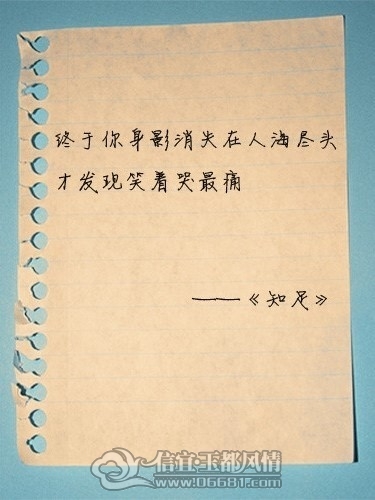 终于你身影消失在人海尽头
才发现笑着哭最痛
——《知足》
信宜·玉都风情
www.06681.com